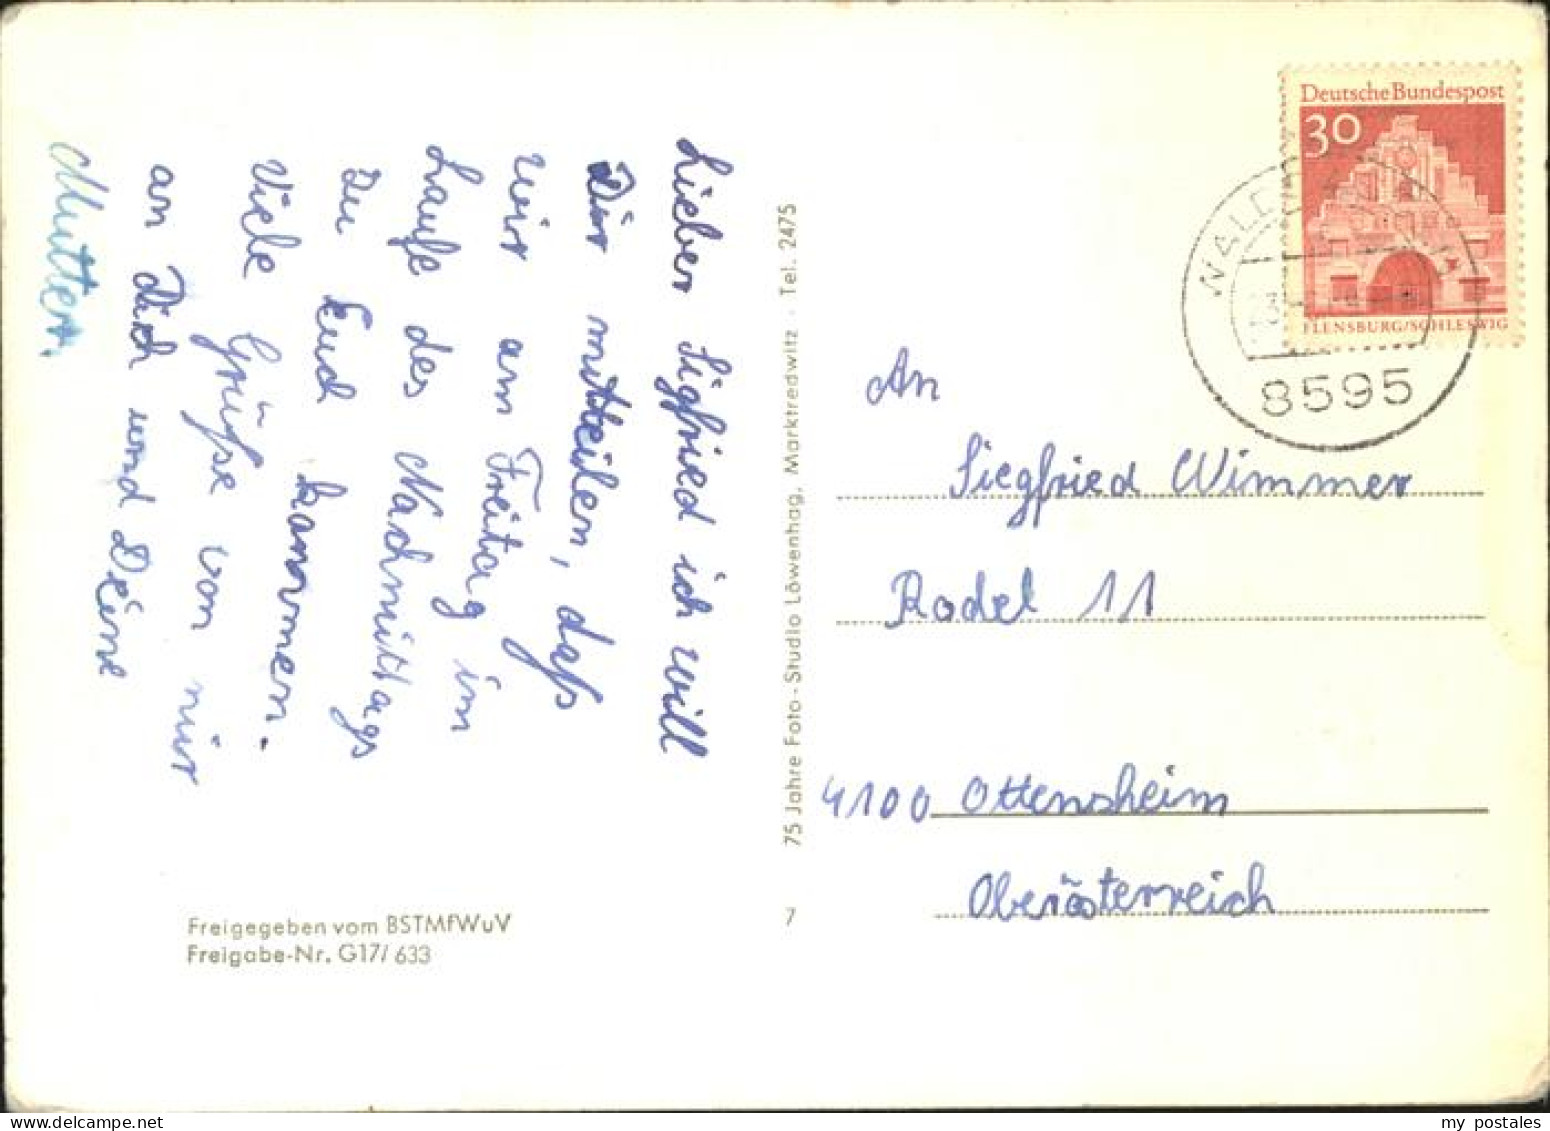 Lieber Sigfried ich will
Dir mitteilen, daß
wir am Freitag im
Laufe des Nachmittags
Zu Euch kommen.
Viele Grüße von mir
an Dich und Deine
Mutter.
Freigegeben vom BSTMfWuV
Freigabe-Nr. G17/ 633
75 Jahre Foto-Studio Löwenhag, Marktredwitz · Tel. 2475
7
Deutsche Bundespost
30
FLENSBURG/SCHLESWIG
8595
An
Siegfried Wimmer
Rodel 11
4100 Ottensheim
Oberösterreich
my postales